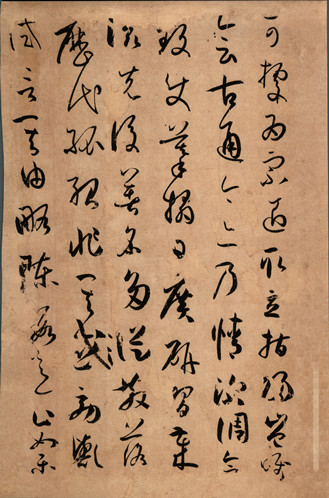 可據為宗匠取立指歸豈唯
會古通今亦乃情深調合
致使摹搨日廣研習歲
滋先後著名多從散落
歷代孤紹非其效與
試言其由略陳數意止如樂